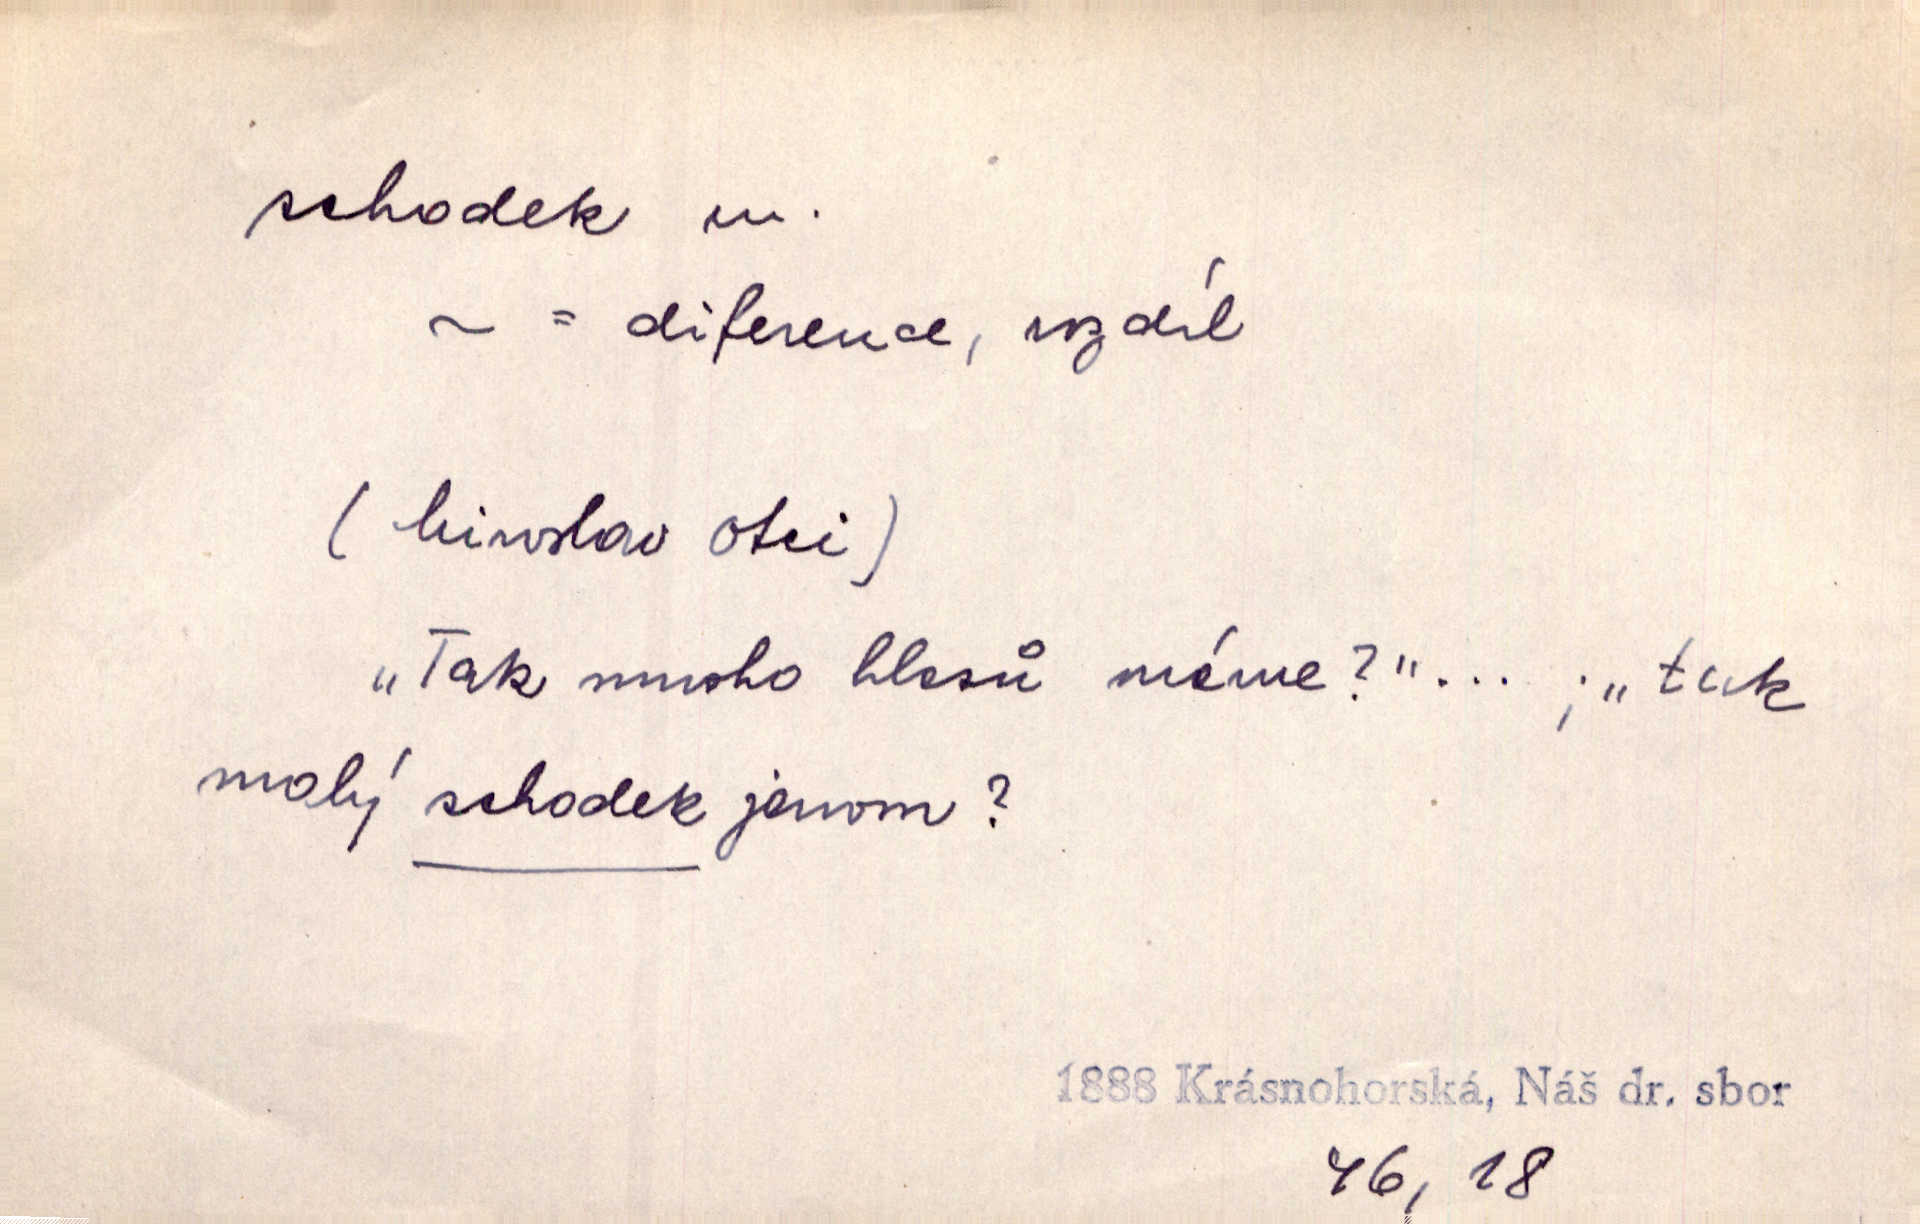 schodek m.
~ = diference, rozdíl
(Miroslav otci)
„Tak mnoho hlasů máme?"... ; „tak
malý schodek jenom?
1888 Krásnohorská, Náš dr. sbor
46, 18